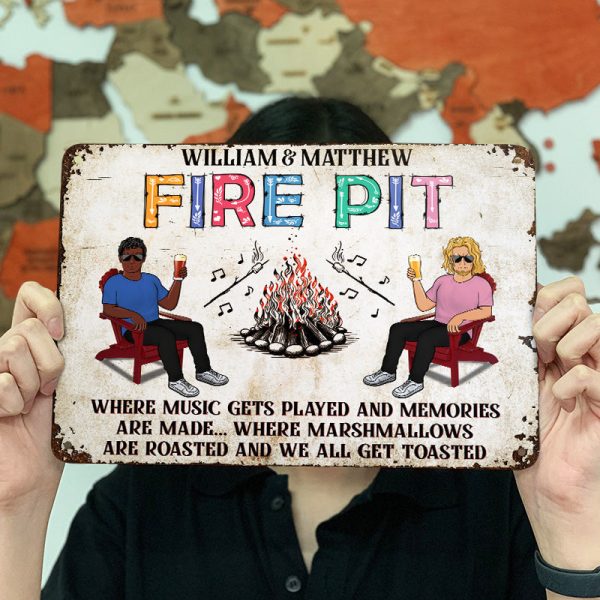 WILLIAM & MATTHEW
FIRE PIT
WHERE MUSIC GETS PLAYED AND MEMORIES
ARE MADE... WHERE MARSHMALLOWS
ARE ROASTED AND WE ALL GET TOASTED